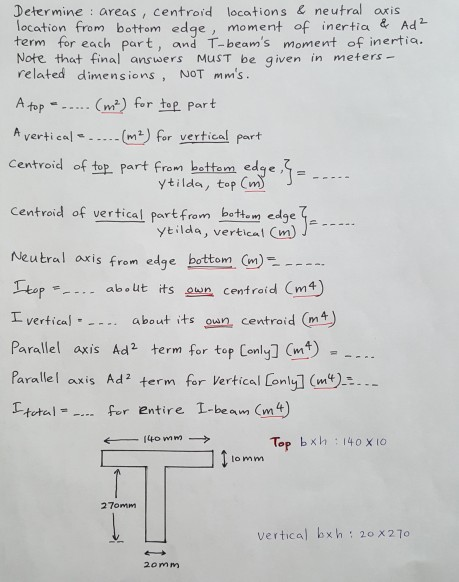 Determine : areas , centroid locations & neutral axis
location from bottom edge , moment of inertia & Ad²
term for each part , and T-beam's moment of inertia.
Note that final answers MUST be given in meters -
related dimensions , NOT mm's.
A top = ----- (m²) for top part
A vertical = -----(m²) for vertical part
Centroid of top part from bottom edge, } = -----
ytilda, top (m)
Centroid of vertical part from bottom edge } = -----
ytilda, vertical (m)
Neutral axis from edge bottom (m) = -----
Itop = ---- about its own centroid (m4)
I vertical = ---- about its own centroid (m4)
Parallel axis Ad² term for top [only] (m4) = ----
Parallel axis Ad² term for Vertical [only] (m4) = ---
I total = ---- for entire I-beam (m4)
140 mm
Top bxh : 140 X 10
10 mm
270mm
vertical bxh : 20 X 270
20mm